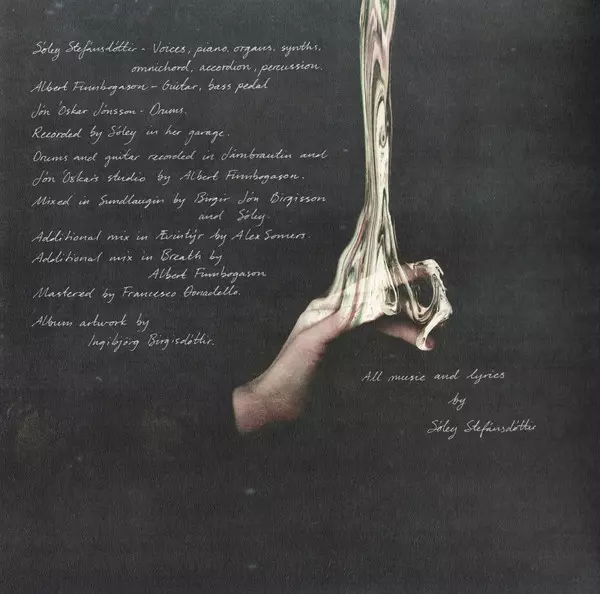 Sóley Stefánsdóttir - Voices, piano, organs, synths,
omnichord, accordion, percussion.
Albert Finnbogason - Guitar, bass pedal
Jón Óskar Jónsson - Drums.
Recorded by Sóley in her garage.
Drums and guitar recorded in Járnbrautin and
Jón Óskars studio by Albert Finnbogason.
Mixed in Sundlaugin by Birgir Jón Birgisson
and Sóley.
Additional mix in Ævintýr by Alex Somers.
Additional mix in Breath by
Albert Finnbogason
Mastered by Francesco Donadello.
Album artwork by
Ingibjörg Birgisdóttir.
All music and lyrics
by
Sóley Stefánsdóttir